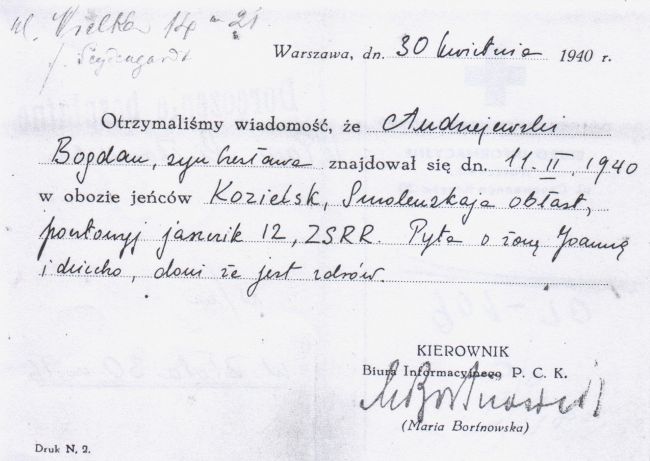 ul. Wielka 14 m 21
Warszawa, dn. 30 kwietnia 1940 r.
Otrzymaliśmy wiadomość, że Andrzejewski
Bogdan, syn Czesława znajdował się dn. 11.II.1940
w obozie jeńców Kozielsk, Smolenskaja obłast,
pocztowyj jaszczik 12, ZSRR. Pyta o żonę Joannę
i dziecko, donosi że jest zdrów.
KIEROWNIK
Biura Informacyjnego P. C. K.
MBortnowska
(Maria Bortnowska)
Druk N. 2.